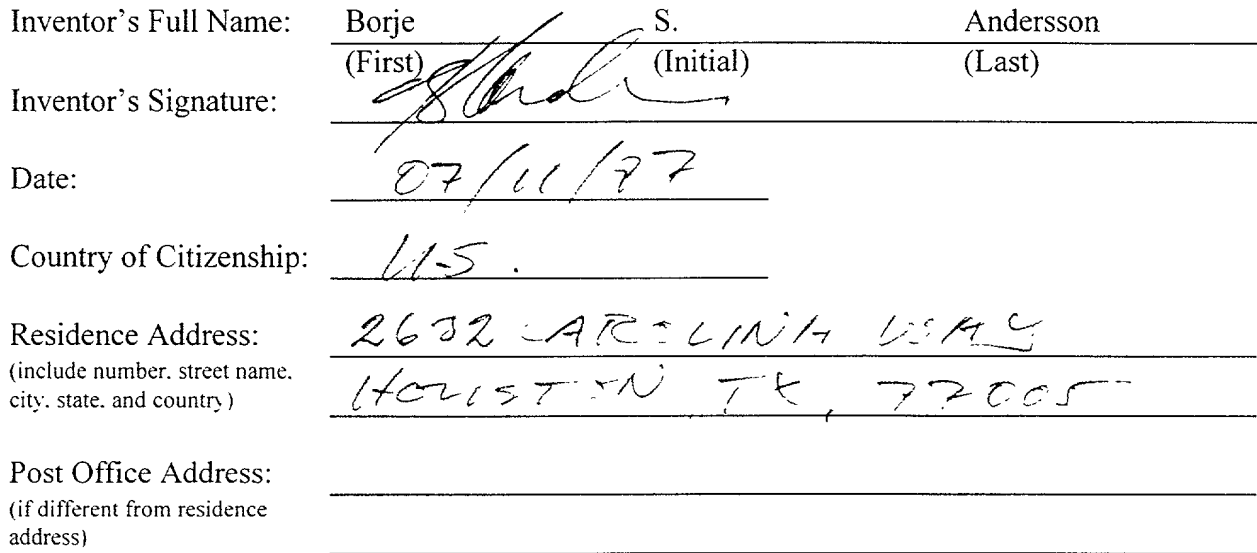 Inventor's Full Name: Borje S. Andersson
(First) (Initial) (Last)
Inventor's Signature:
Date: 07/11/97
Country of Citizenship: U.S.
Residence Address: 2632 CAROLINA WAY
(include number, street name,
city, state, and country) HOUSTON TX, 77005
Post Office Address:
(if different from residence
address)